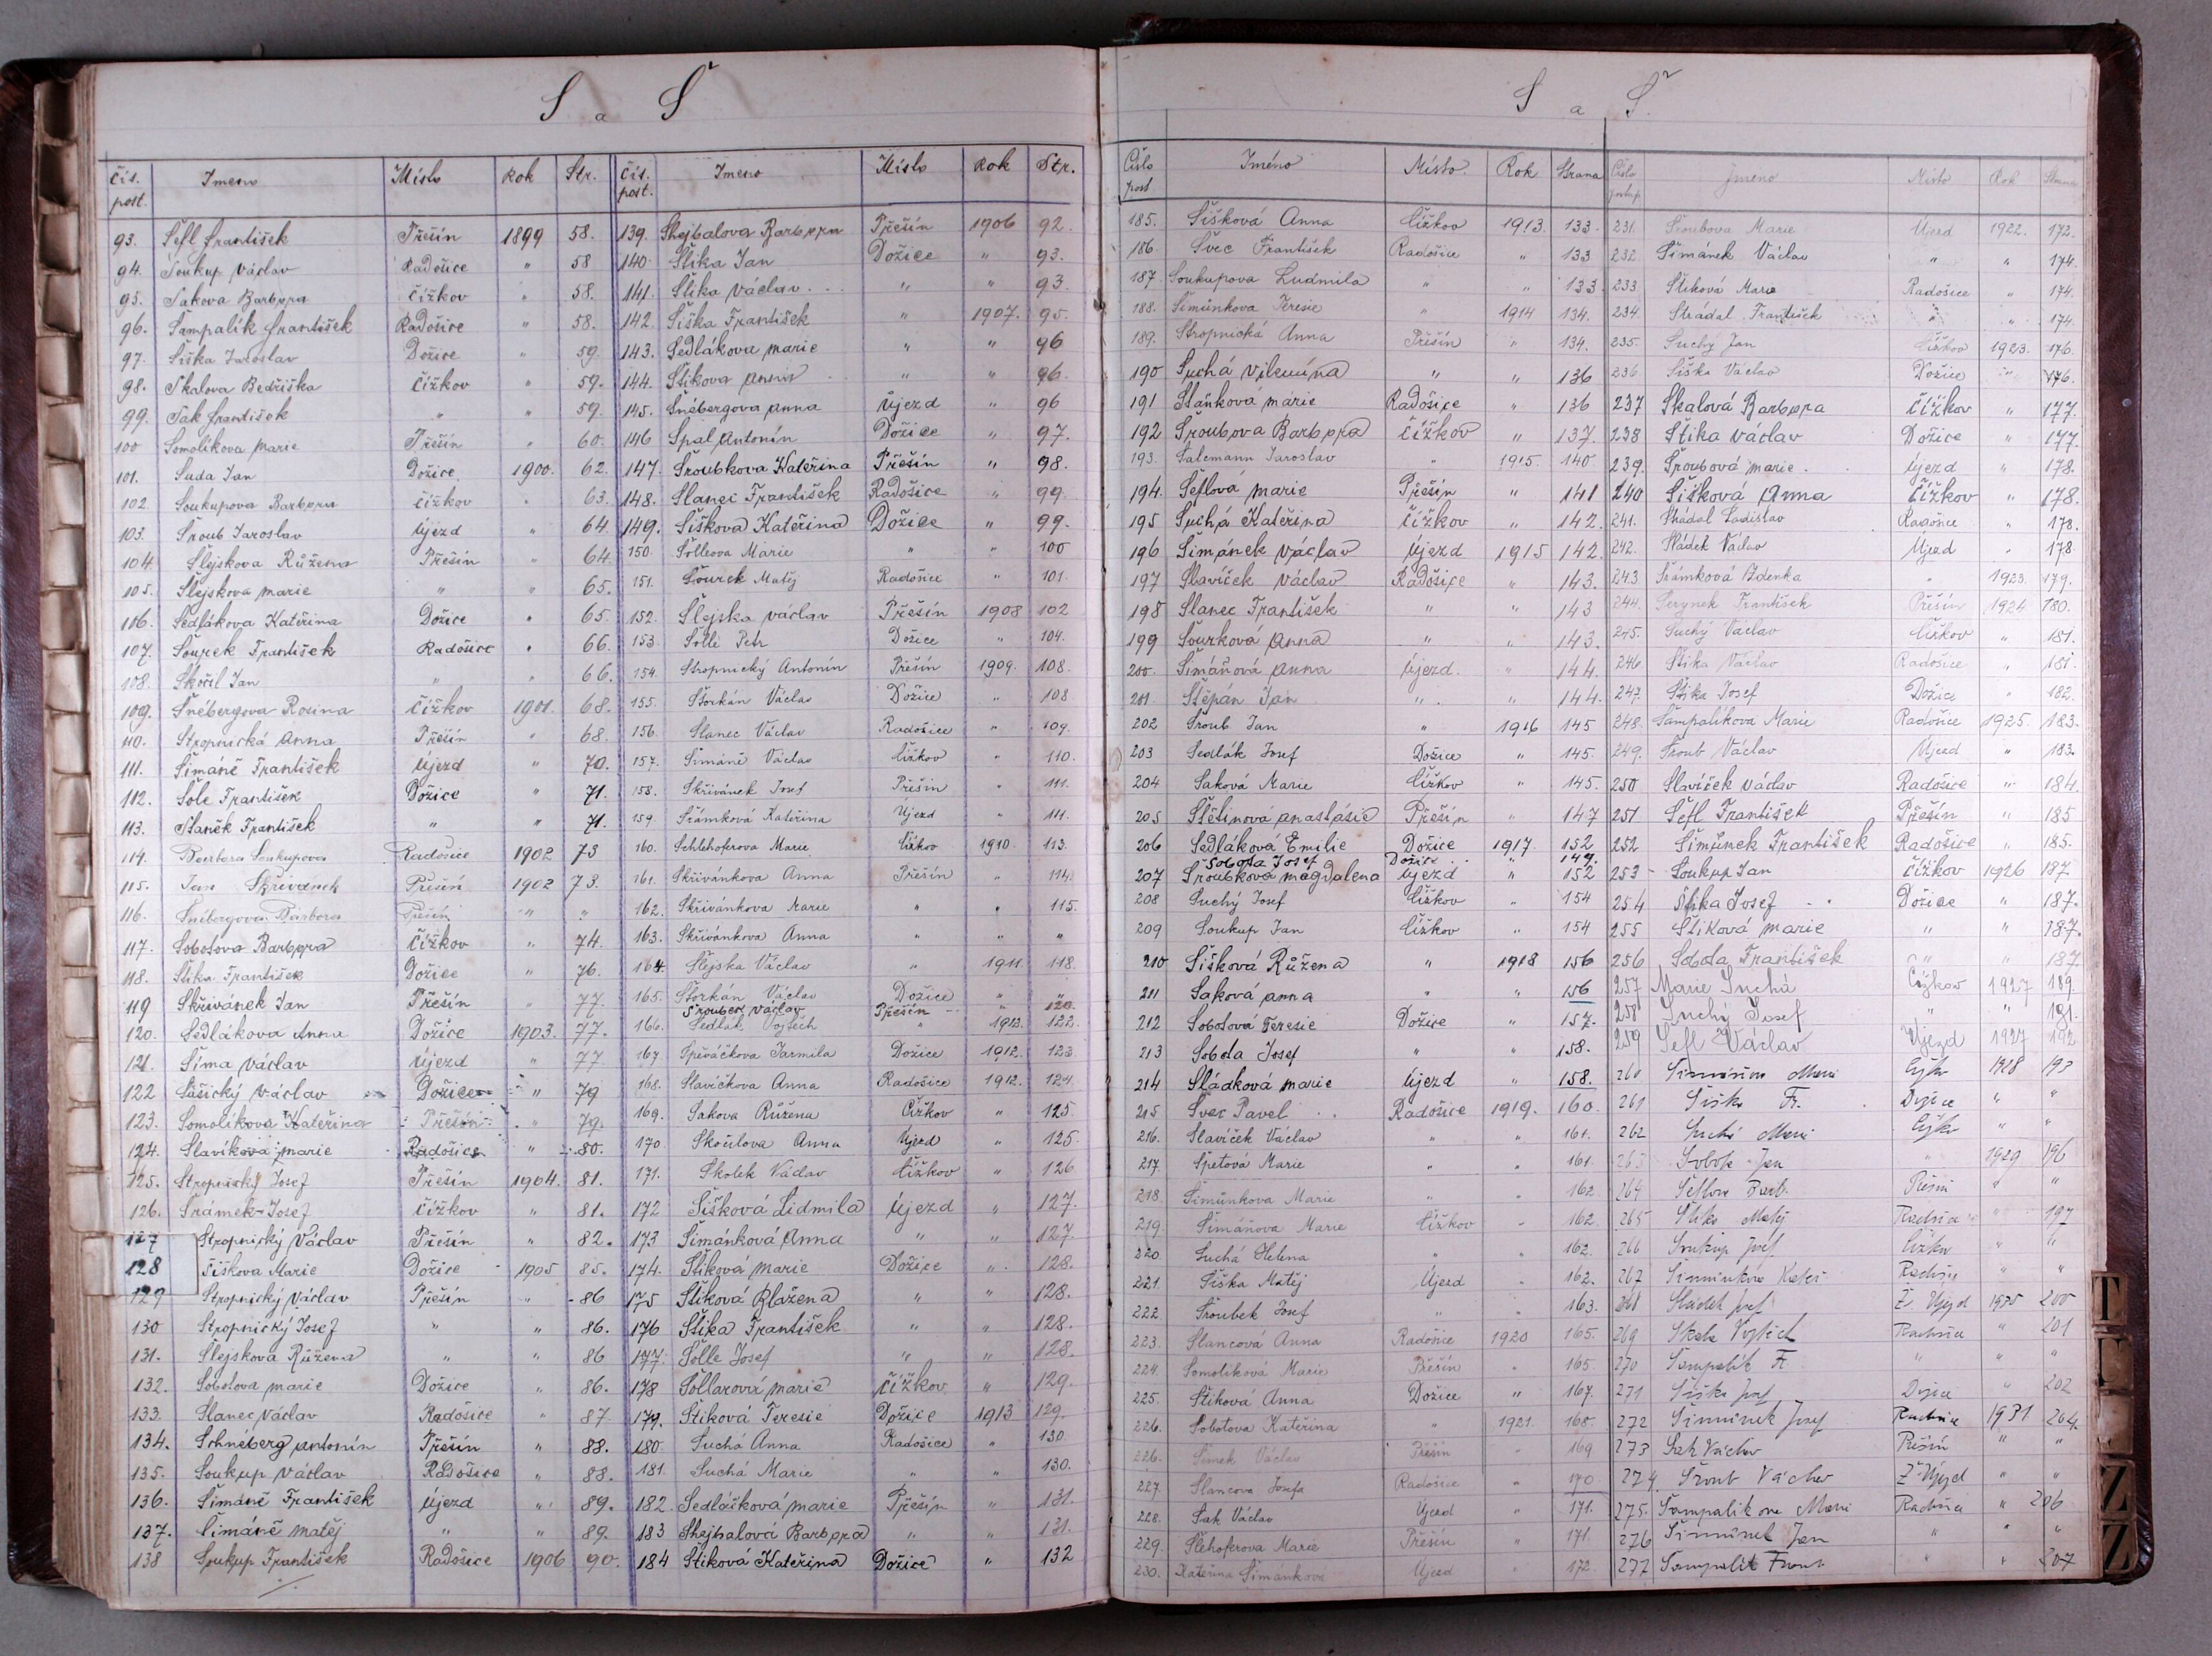 S a Š
čís. post. Jmeno Místo Rok Str.
93. Šefl František Přešín 1899 58.
94. Soukup Václav Radošice " 58
95. Sakova Barbora Čížkov " 58.
96. Šampalík František Radošice " 58.
97. Šiška Jaroslav Dožice " 59
98. Skalova Bedřiška Čížkov " 59.
99. Sak František " " 59
100 Somolíkova Marie Přešín " 60.
101. Suda Jan Dožice 1900. 62.
102 Soukupova Barbora Čížkov " 63.
103. Šroub Jaroslav Újezd " 64
104. Šlejskova Růžena Přešín " 64.
105. Šlejskova Marie " " 65.
106. Sedlákova Kateřina Dožice " 65.
107. Šourek František Radošice " 66.
108. Skočil Jan " " 66.
109. Šnébergova Rosina Čížkov 1901. 68.
110. Stropnická Anna Přešín " 68.
111. Šimáně František Újezd " 70.
112. Šole František Dožice " 71.
113. Staněk František " " 71.
114. Barbora Soukupova Radošice 1902 73
115. Jan Skřivánek Přešín 1902 73.
116. Šnébergova Barbora Přešín " "
117. Sobotova Barbora Čížkov " 74.
118. Štika František Dožice " 76.
119 Skřivánek Jan Přešín " 77.
120. Sedlákova Anna Dožice 1903. 77.
121. Šíma Václav Újezd " 77
122 Sušický Václav Dožice " 79
123. Somolíkova Kateřina Přešín " 79.
124. Slavíková Marie Radošice " 80.
125. Stropnický Josef Přešín 1904. 81.
126. Šrámek Josef Čížkov " 81.
127 Stropnický Václav Přešín " 82.
128 Šiškova Marie Dožice 1905 85.
129 Stropnický Václav Přešín " 86
130 Stropnický Josef " " 86.
131. Šlejskova Růžena " " 86
132. Sobotova Marie Dožice " 86.
133. Slanec Václav Radošice " 87
134. Schnéberg Antonín Přešín " 88.
135. Soukup Václav Radošice " 88.
136. Šimáně František Újezd " 89.
137. Šimáně Matěj " " 89.
138 Soukup František Radošice 1906 90.
čís. post. Jmeno Místo Rok Str.
139. Shejbalova Barbora Přešín 1906 92.
140. Štika Jan Dožice " 93.
141. Štika Václav " " 93
142. Šiška František " 1907. 95.
143. Sedlákova Marie " " 96
144. Štikova Anna " " 96.
145. Šnébergova Anna Újezd " 96
146 Špal Antonín Dožice " 97.
147. Šroubkova Kateřina Přešín " 98.
148. Slanec František Radošice " 99.
149. Šiškova Kateřina Dožice " 99.
150. Šolleova Marie " " 100
151. Šourek Matěj Radošice " 101.
152. Šlejska Václav Přešín 1908 102
153. Šolle Petr Dožice " 104.
154. Stropnický Antonín Přešín 1909. 108.
155. Štorkán Václav Dožice " 108
156. Slanec Václav Radošice " 109.
157. Šimáně Václav Čížkov " 110.
158. Skřivánek Josef Přešín " 111.
159 Šrámková Kateřina Újezd " 111.
160. Schlehoferova Marie Čížkov 1910. 113.
161. Skřivánkova Anna Přešín " 114.
162. Skřivánkova Marie " " 115.
163. Skřivánkova Anna " " "
164. Šlejska Václav " 1911 118.
165. Štorkán Václav Dožice " "
Šroubek Václav Přešín " 120.
166. Sedlák Vojtěch " 1912. 122.
167 Spěváčkova Jarmila Dožice 1912. 123
168. Slavíčkova Anna Radošice 1912. 124.
169. Sakova Růžena Čížkov " 125.
170. Skočilova Anna Újezd " 125.
171. Skolek Václav Čížkov " 126
172 Šišková Lidmila Újezd " 127.
173 Šimánková Anna " " 127.
174. Štiková Marie Dožice " 128.
175 Štiková Blažena " " 128.
176 Štika František " " 128.
177. Šolle Josef " " 128.
178 Šollarová Marie Čížkov " 129.
179. Štiková Teresie Dožice 1913 129.
180. Suchá Anna Radošice " 130
181. Suchá Marie " " 130.
182. Sedláčková Marie Přešín " 131.
183 Shejbalová Barbora " " 131.
184 Štiková Kateřina Dožice " 132
S a Š.
Číslo post Jméno Místo Rok Strana
185. Šišková Anna Čížkov 1913. 133.
186. Švec František Radošice " 133
187. Soukupova Ludmila " " 133.
188. Šimůnkova Teresie " 1914 134.
189. Stropnická Anna Přešín " 134.
190 Suchá Vilemína " " 136
191 Staňková Marie Radošice " 136
192 Šroubova Barbora Čížkov " 137.
193. Salcmann Jaroslav " 1915. 140
194. Šeflová Marie Přešín " 141
195 Suchá Kateřina Čížkov " 142.
196 Šimánek Václav Újezd 1915 142.
197 Slavíček Václav Radošice " 143.
198 Slanec František " " 143
199 Šourková Anna " " 143.
200. Šimáňová Anna Újezd. " 144.
201. Štěpán Jan " " 144.
202 Šroub Jan " 1916 145
203 Sedlák Josef Dožice " 145.
204 Saková Marie Čížkov " 145.
205 Štětinová Anastasie Přešín " 147
206 Sedláková Emilie Dožice 1917 152
Sobota Josef Dožice " 149.
207 Šroubkova Magdalena Újezd " 152
208 Suchý Josef Čížkov " 154
209 Soukup Jan Čížkov " 154
210 Šišková Růžena " 1918 156
211 Saková Anna " " 156
212 Sobotová Teresie Dožice " 157.
213 Sobota Josef " " 158.
214 Sládková Marie Újezd " 158.
215 Švec Pavel Radošice 1919. 160.
216. Slavíček Václav " " 161.
217. Špetová Marie " " 161.
218. Šimůnkova Marie " " 162.
219. Šimáňova Marie Čížkov " 162.
220 Suchá Helena " " 162.
221. Šiška Matěj Újezd " 162.
222. Šroubek Josef " " 163.
223. Slancová Anna Radošice 1920 165.
224. Somolíková Marie Přešín " 165.
225. Štiková Anna Dožice " 167.
226. Sobotova Kateřina " 1921. 168.
226. Šimek Václav Přešín " 169
227. Slancova Josefa Radošice " 170
228. Sak Václav Újezd " 171.
229. Šlehoferova Marie Přešín " 171.
230. Kateřina Šimankova Újezd " 172.
Číslo postup. Jmeno Místo Rok Strana
231. Šroubova Marie Újezd 1922. 172.
232. Šimánek Václav " " 174.
233 Štiková Marie Radošice " 174.
234. Strádal František " " 174
235. Suchý Jan Čížkov 1923. 176.
236 Šiška Václav Dožice " 176.
237 Skalová Barbora Čížkov " 177.
238 Štika Václav Dožice " 177.
239. Šroubová Marie. Újezd " 178.
240 Šišková Anna Čížkov " 178.
241. Strádal Ladislav Radošice " 178.
242. Sládek Václav Újezd " 178
243. Šrámková Zdenka " 1923. 179.
244. Serynek František Přešín 1924 180.
245. Suchý Václav Čížkov " 181.
246 Štika Václav Radošice " 181.
247. Štika Josef Dožice " 182.
248. Šampalíkova Marie Radošice 1925. 183.
249. Šroub Václav Újezd " 183.
250 Slavíček Václav Radošice " 184.
251 Šefl František Přešín " 185
252 Šimůnek František Radošice " 185.
253 Soukup Jan Čížkov 1926 187
254 Štika Josef Dožice " 187.
255 Štiková Marie " " 187.
256 Sobota František " " 187
257 Marie Suchá Čížkov 1927 189.
258 Suchý Josef " " 191.
259 Šefl Václav Újezd 1927 192
260 Marie 1928 193
261 Šiška Fr. Dožice " "
262 Suchá Marie " "
263 Jan " 1929 196
264 Šeflova Barb. Přešín " "
265 Štika Matěj " 197
266 Soukup Josef Čížkov " "
267 Šimůnkova " "
268 Sládek Josef Ž. Újezd 1930 200
269 Vojtěch " 201
270 Šampalík Fr. " " "
271 Šiška Josef " 202
272 Šimůnek Josef 1931 204
273 Sak Václav Přešín " "
274. Šroub Václav Ž. Újezd " "
275. Šampalíkova Marie " 206
276 Šimůnek Jan " " "
277 Šampalík Frant " " 207
T
Z
Z